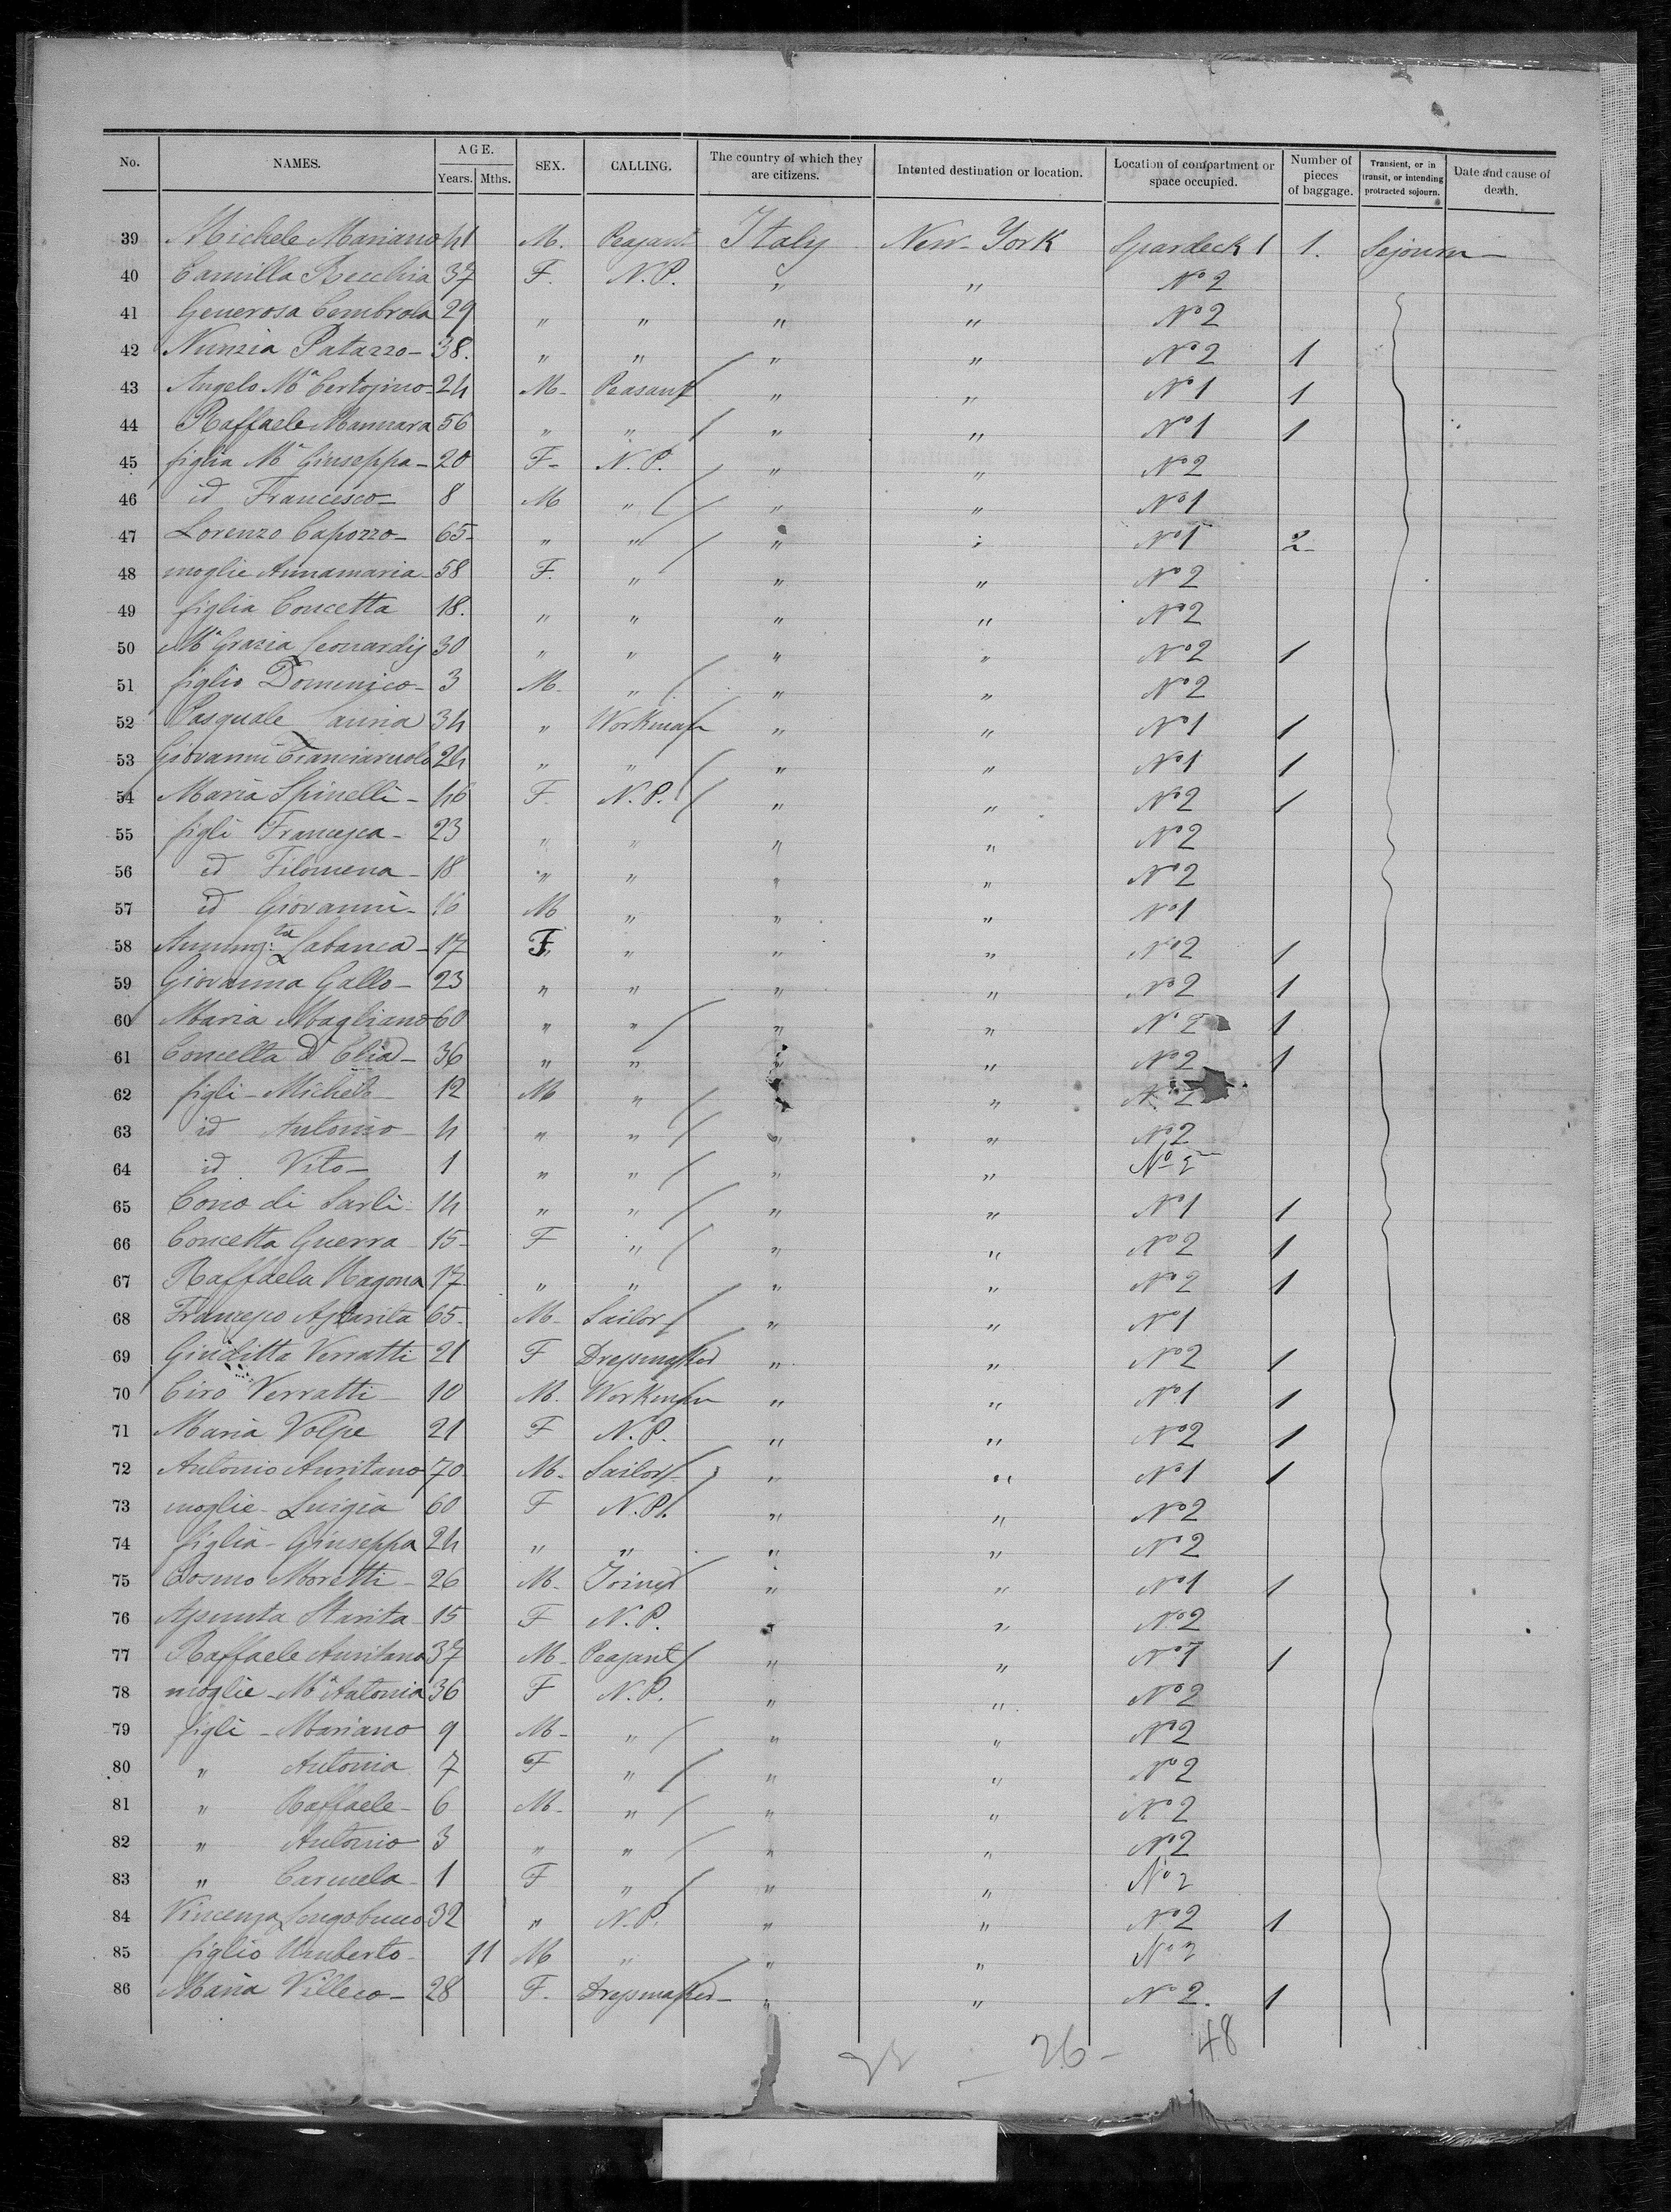 No. NAMES. AGE. Years. Mths. SEX. CALLING. The country of which they are citizens. Intented destination or location. Location of compartment or space occupied. Number of pieces of baggage. Transient, or in transit, or intending protracted sojourn. Date and cause of death.
39 Michele Mariano 41 M. Peasant Italy New-York Spardeck 1 1. Sejourn
40 Camilla Recchia 37 F. N.P. " " Nº 2
41 Generosa Cembrola 29 " " " " Nº 2
42 Nunzia Patazzo 38. " " " " Nº 2 1
43 Angelo Mª 24 M- Peasant " " Nº 1 1
44 Raffaele Mannara 56 " " " " Nº 1 1
45 figlia Mª Giuseppa 20 F- N.P. " " Nº 2
46 id Francesco 8 M " " " Nº 1
47 Lorenzo Capozzo 65 " " " " Nº 1 2
48 moglie Annamaria 58 F. " " " Nº 2
49 figlia Concetta 18. " " " " Nº 2
50 Mª Grazia Leonardis 30 " " " " Nº 2 1
51 figlio Domenico 3 M- " " " Nº 2
52 Pasquale Lauria 34 " Workman " " Nº 1 1
53 Giovanni Cianciaruolo 24 " " " " Nº 1 1
54 Maria Spinelli 46 F. N.P. " " Nº 2 1
55 figli Francesca 23 " " " " Nº 2
56 id Filomena 18 " " " " Nº 2
57 id Giovanni 16 M " " " Nº 1
58 Annunz:ta Labanca 17 F " " " Nº 2 1
59 Giovanna Gallo 23 " " " " Nº 2 1
60 Maria Magliano 60 " " " " Nº 2 1
61 Concetta d'Elia 36 " " " " Nº 2 1
62 figli - Michele 12 M " " " Nº 2
63 id Antonio 4 " " " " Nº 2
64 id Vito 1 " " " " Nº 2
65 Cono di Sarli 14 " " " " Nº 1 1
66 Concetta Guerra 15 F " " " Nº 2 1
67 Raffaela Ragona 17 " " " " Nº 2 1
68 Francesco Astarita 65 M- Sailor " " Nº 1
69 Giuditta Verratti 21 F Dressmaker " " Nº 2 1
70 Ciro Verratti 10 M. Workman " " Nº 1 1
71 Maria Volpe 21 F N.P. " " Nº 2 1
72 Antonio Auritano 70 M- Sailor " " Nº 1 1
73 moglie - Luigia 60 F N.P. " " Nº 2
74 figlia - Giuseppa 24 " " " " Nº 2
75 Cosmo Moretti 26 M- Joiner " " Nº 1 1
76 Assunta Starita 15 F N.P. " " Nº 2
77 Raffaele Auritano 37 M- Peasant " " Nº 1 1
78 moglie - Mª Antonia 36 F N.P. " " Nº 2
79 figli - Mariano 9 M- " " " Nº 2
80 " Antonia 7 F " " " Nº 2
81 " Raffaele 6 M- " " " Nº 2
82 " Antonio 3 " " " " Nº 2
83 " Carmela 1 F " " " Nº 2
84 Vincenza Longobucco 32 " N.P. " " Nº 2 1
85 figlio Umberto 11 M " " " Nº 2
86 Maria Villeco 28 F. Dressmaker " " Nº 2. 1
22 26 - 48